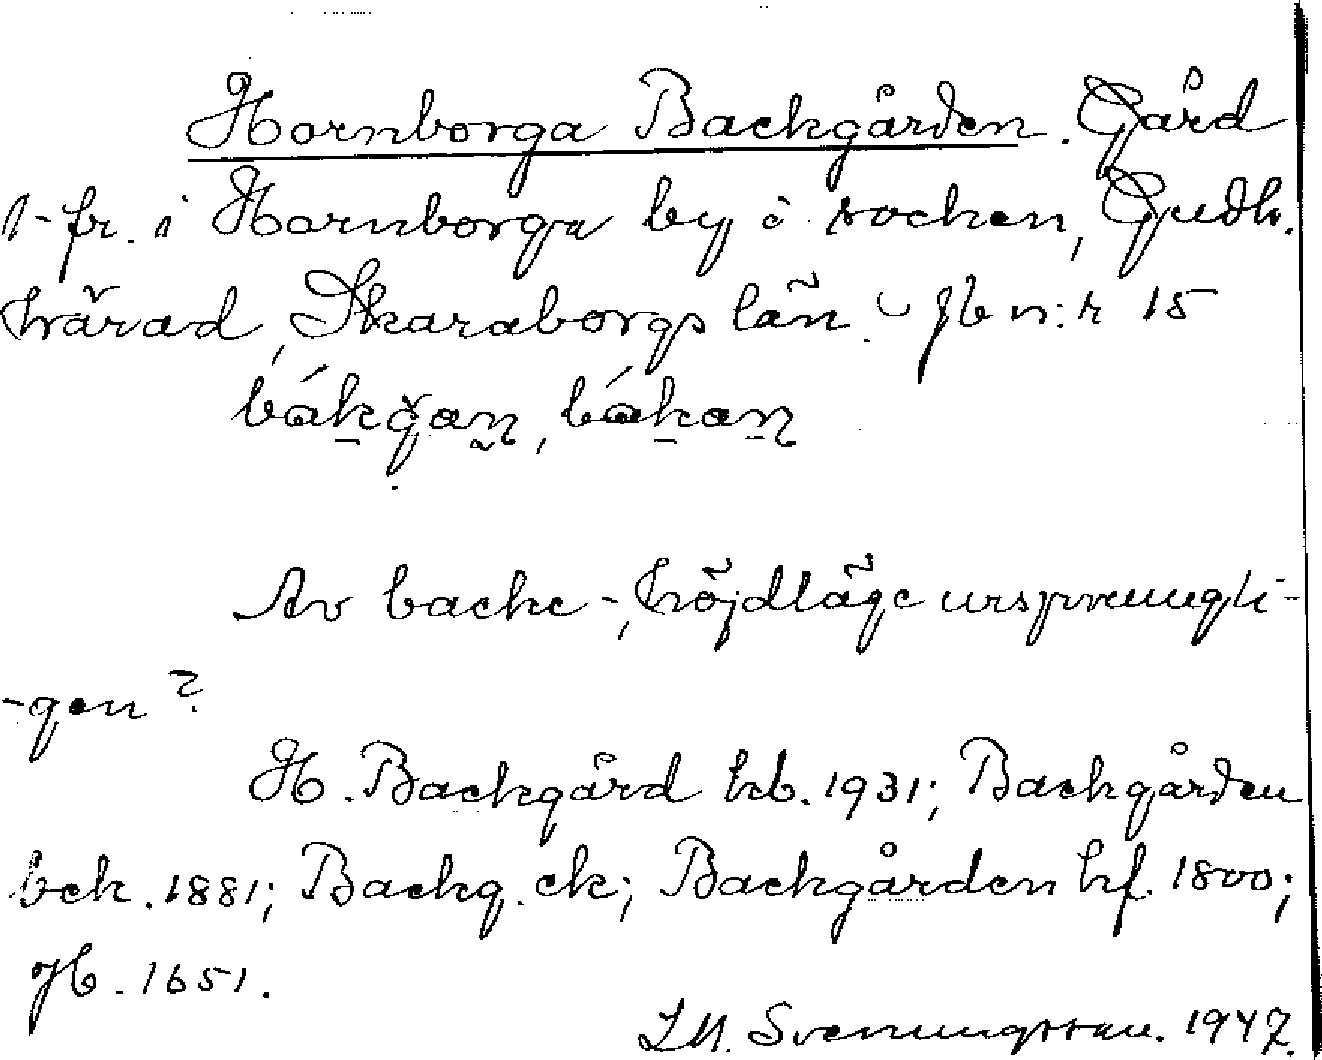 Hornborga Backgården. Gård
1-fr. i Hornborga by o. socken, Gudh.
härad, Skaraborgs län. Jb n:r 15
bákgan, bákan
Av backe-, höjdläge ursprungli-
-gen?
H. Backgård kb. 1931; Backgården
bek. 1881; Backg. ek; Backgården hf. 1800;
Jb. 1651.
I.M. Svenungsson. 1947.